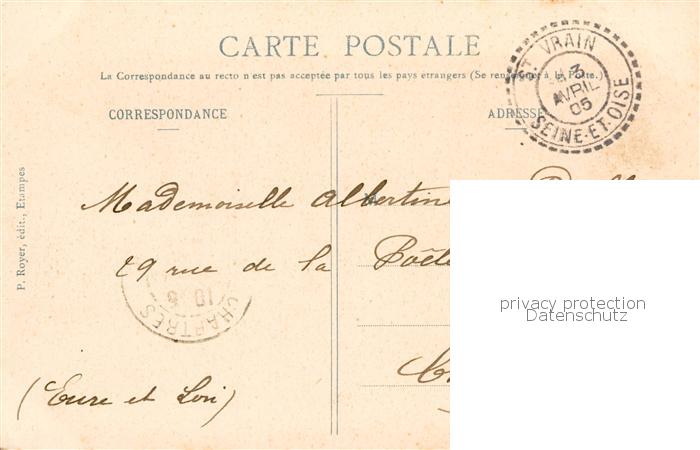 CARTE POSTALE
La Correspondance au recto n'est pas acceptée par tous les pays étrangers (Se renseigner à la Poste.)
CORRESPONDANCE
ADRESSE
ST VRAIN
3
AVRIL
05
SEINE-ET-OISE
Mademoiselle Albertine
29 rue de la Poêle
(Eure et Loir)
CHARTRES
P. Royer, édit., Etampes
privacy protection
Datenschutz